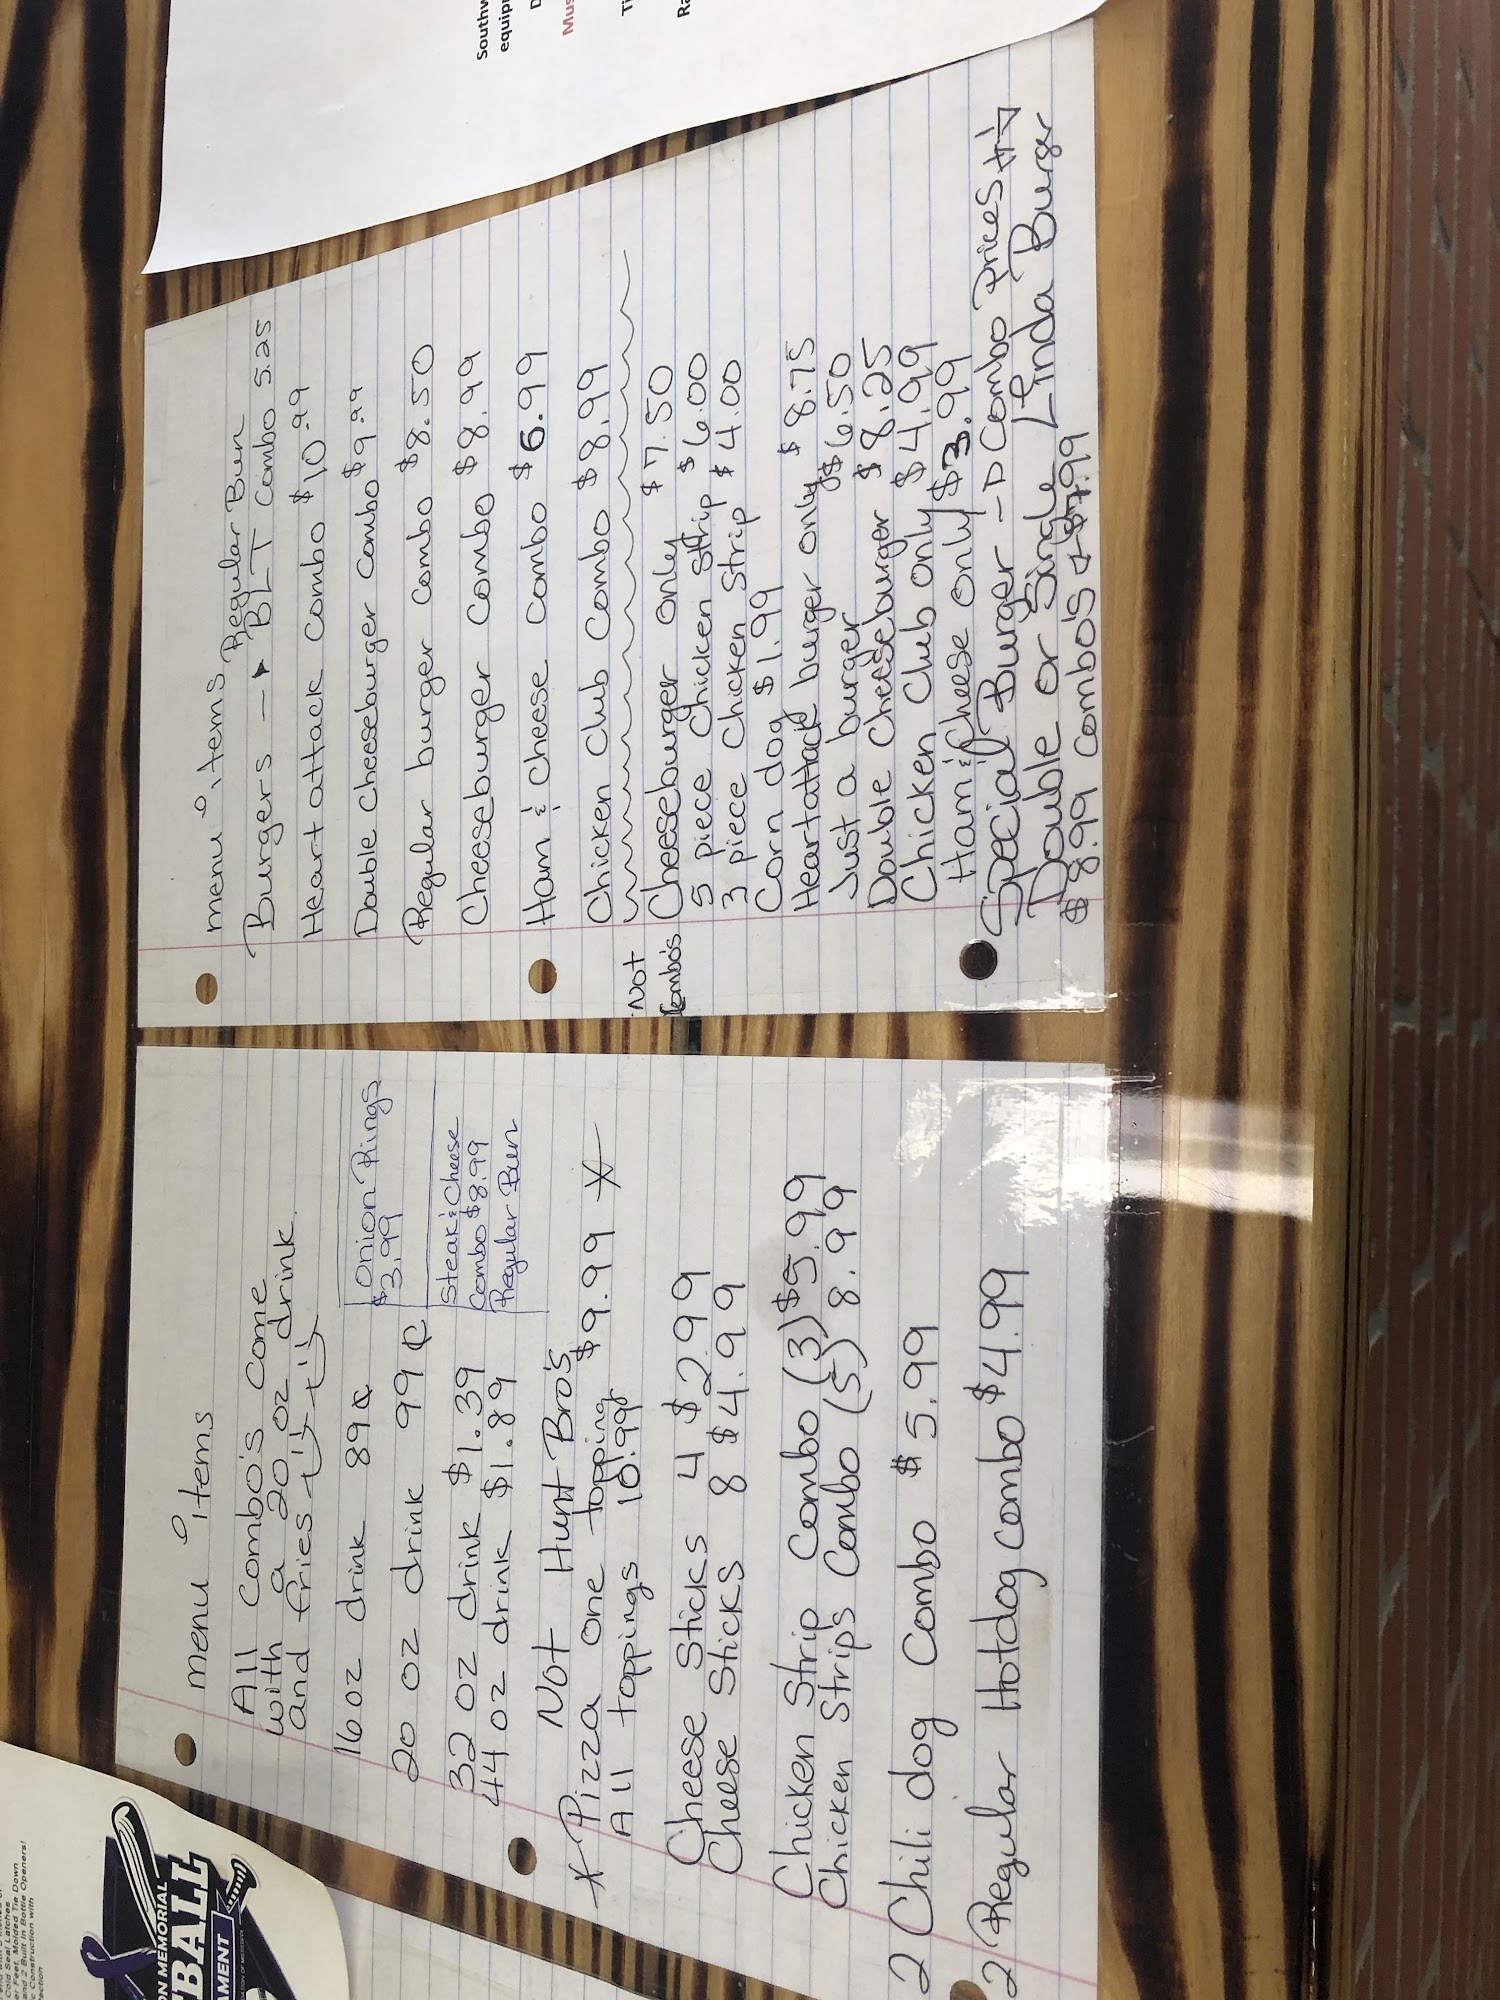 menu items
All combo's come
with a 20 oz drink
and fries
16oz drink 89¢
20 oz drink 99¢
32 oz drink $1.39
44 oz drink $1.89
Onion Rings
$3.99
Steak & Cheese
Combo $8.99
Regular Bun
Not Hunt Bro's
* Pizza one topping $9.99 *
All toppings 10.99
Cheese Sticks 4 $2.99
Cheese Sticks 8 $4.99
Chicken Strip Combo (3) $5.99
Chicken Strips Combo (5) 8.99
2 Chili dog Combo $5.99
2 Regular Hotdog Combo $4.99
menu items
Regular Bun
Burgers → BLT Combo 5.25
Heart attack combo $10.99
Double Cheeseburger Combo $9.99
Regular burger combo $8.50
Cheeseburger Combo $8.99
Ham & Cheese Combo $6.99
Chicken Club Combo $8.99
Not
Combo's
Cheeseburger only $7.50
5 piece Chicken Strip $6.00
3 piece Chicken Strip $4.00
Corn dog $1.99
Heartattack burger only $8.75
Just a burger $6.50
Double Cheeseburger $8.25
Chicken Club only $4.99
Ham & Cheese only $3.99
Special Burger → Combo Prices
Double or Single Linda Burger
$8.99 Combo's & $7.99
ON MEMORIAL
BALL
AMENT
Cold Seal Latches
er Feet, Molded Tie Down
and 2 Built In Bottle Openers!
Construction with
Southw
equipm
D
Mus
Ti
Ra